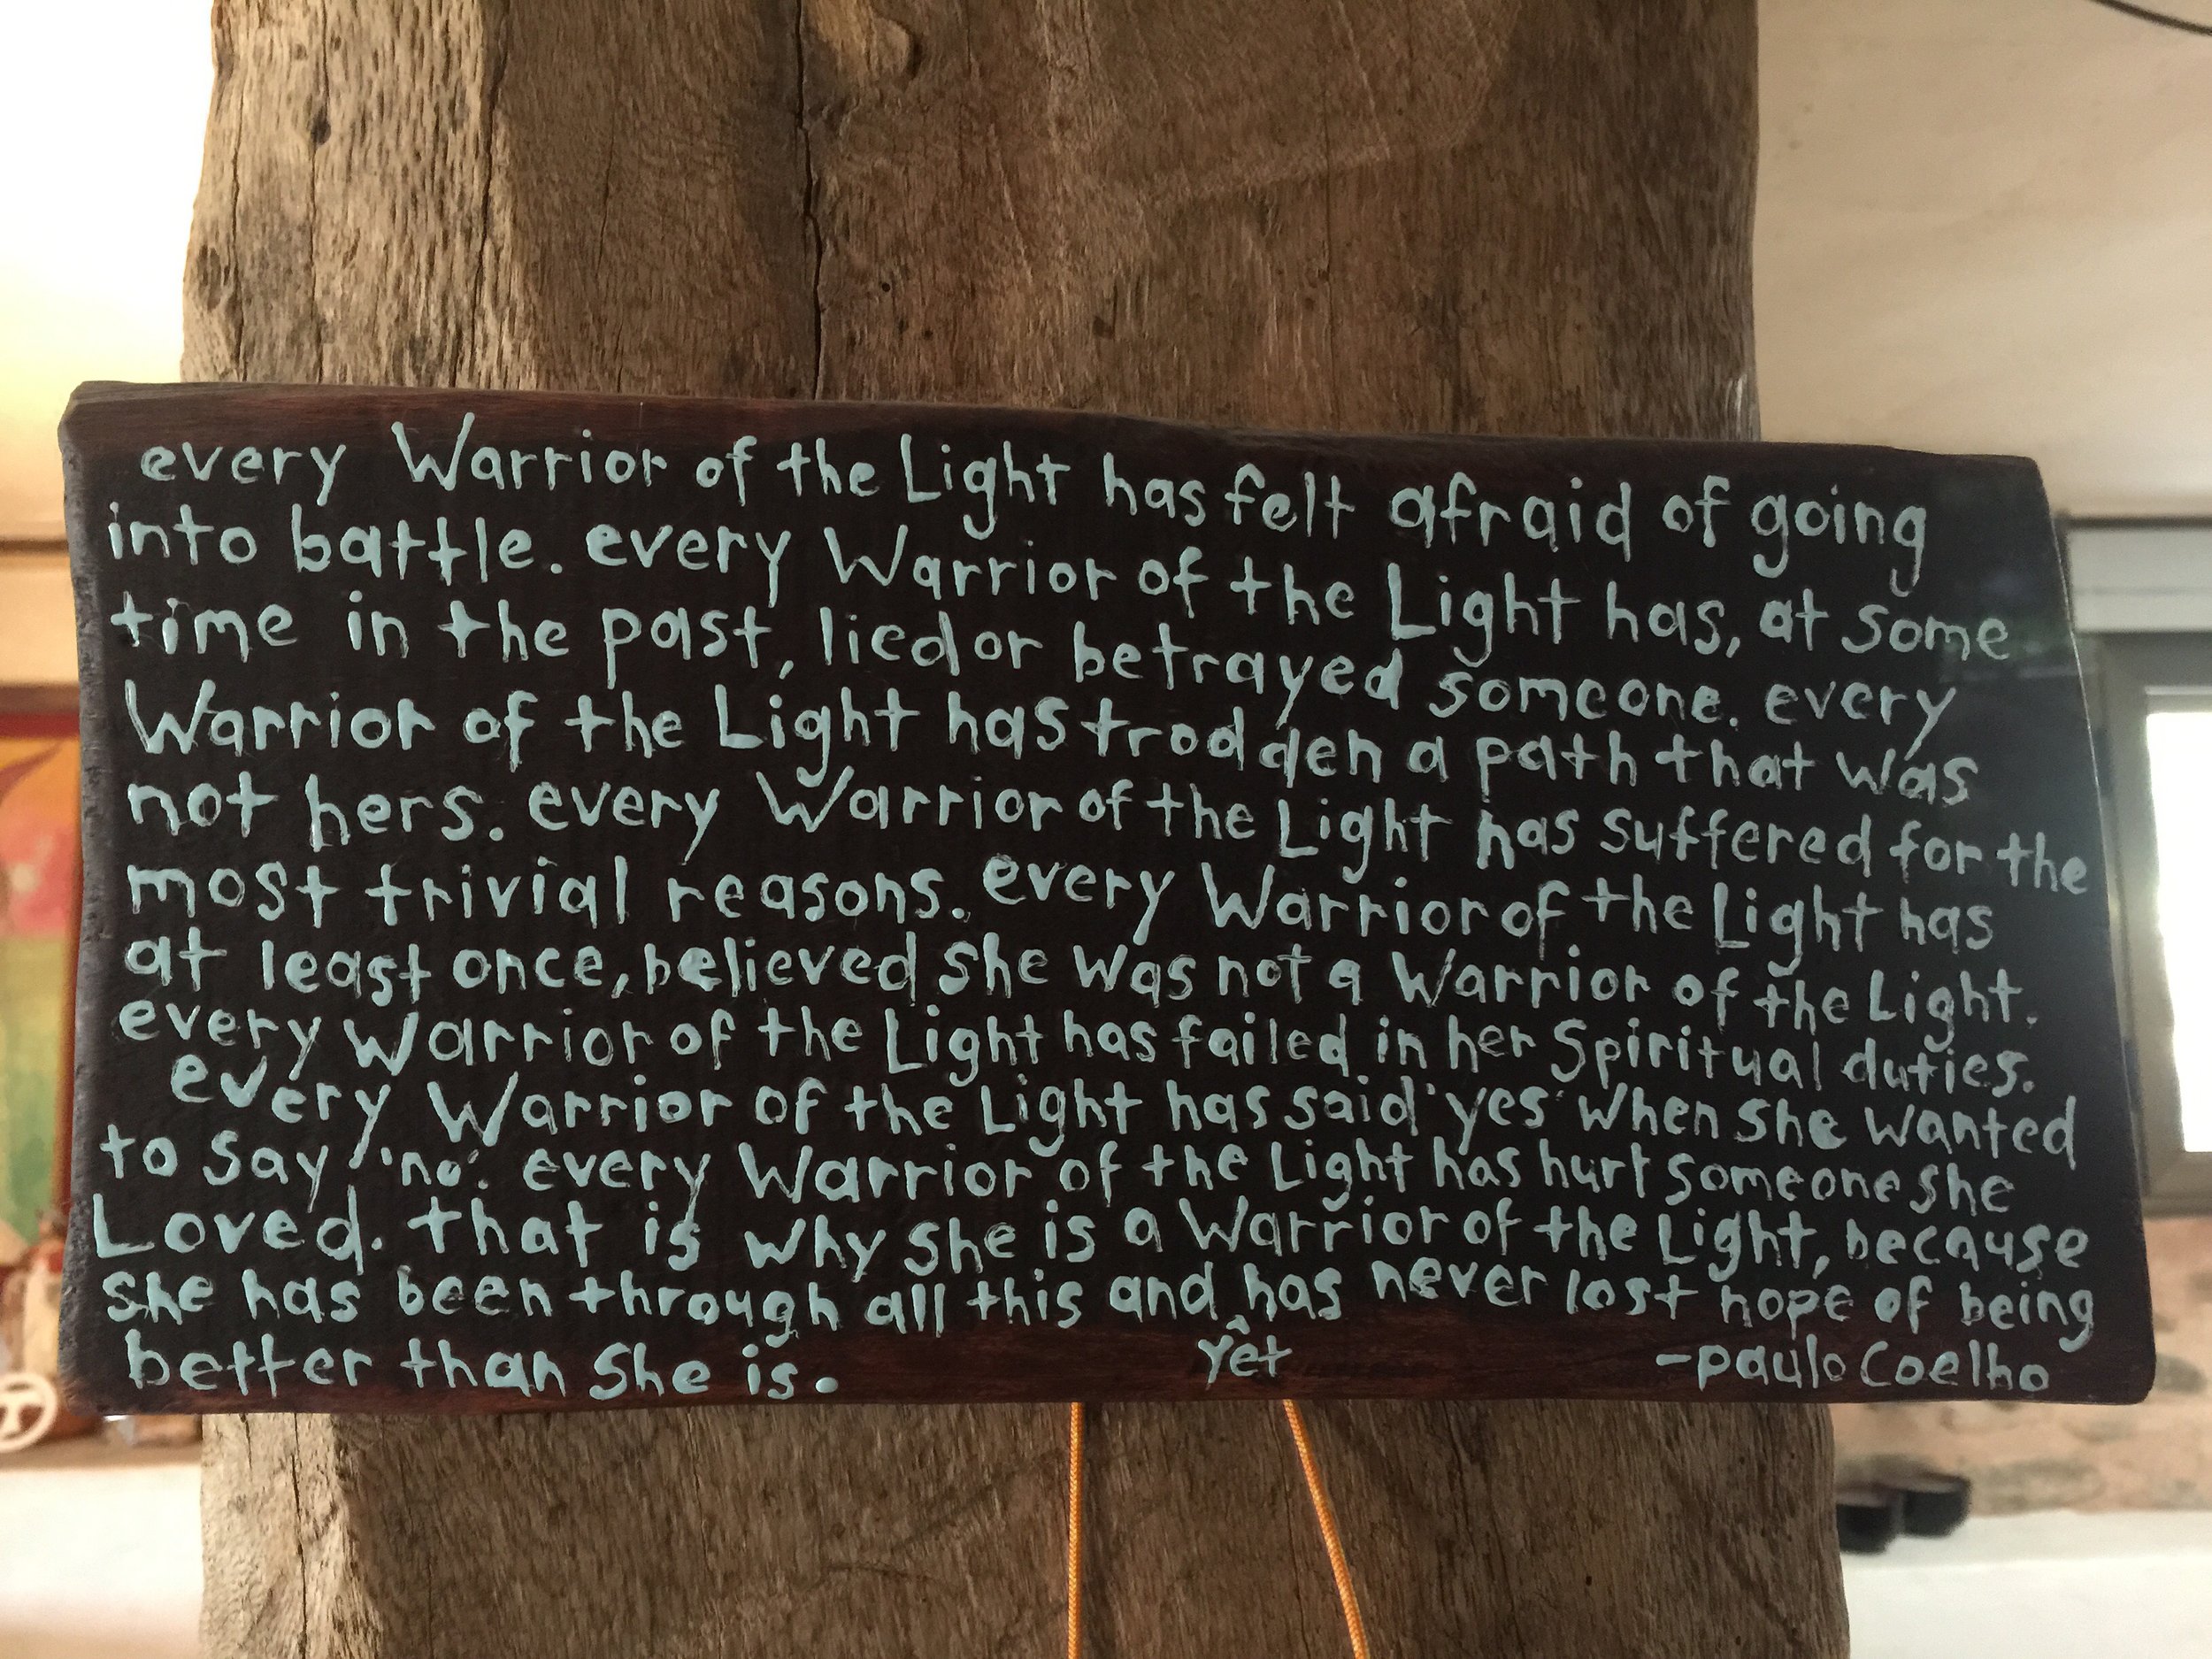 every Warrior of the Light has felt afraid of going
into battle. every Warrior of the Light has, at some
time in the past, lied or betrayed someone. every
Warrior of the Light has trodden a path that was
not hers. every Warrior of the Light has suffered for the
most trivial reasons. every Warrior of the Light has
at least once, believed she was not a Warrior of the Light.
every Warrior of the Light has failed in her Spiritual duties.
every Warrior of the Light has said 'yes' when she wanted
to say 'no'. every Warrior of the Light has hurt someone she
Loved. that is why she is a Warrior of the Light, because
she has been through all this and ^ has never lost hope of being
yet
better than she is.
-paulo Coelho